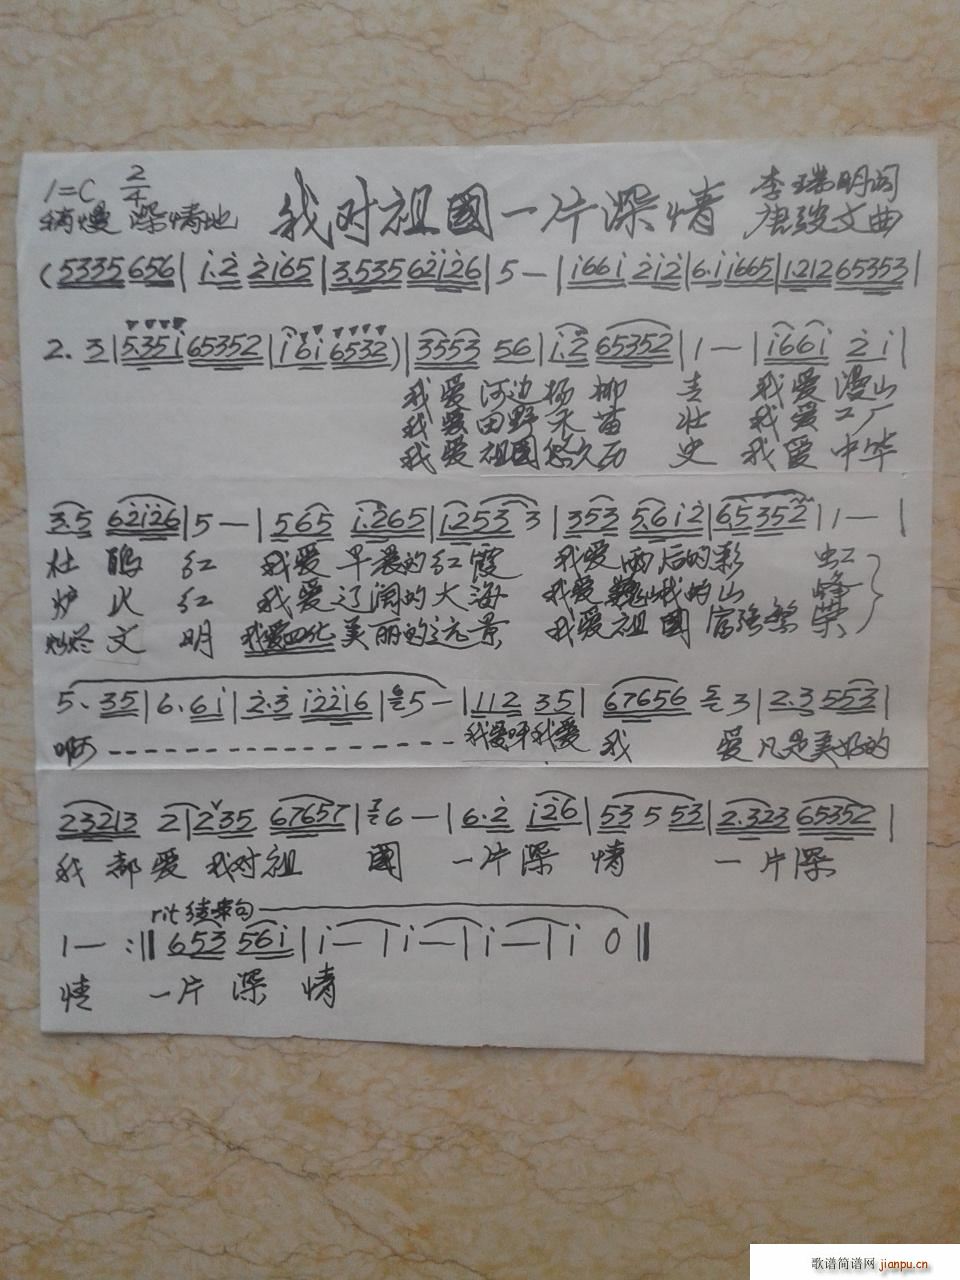 1=C 2/4 我对祖國一片深情 李瑞明词
稍慢 深情地 唐 文曲
(5335 656 | i.2 2i65 | 3.535 62i26 | 5 — | i66i 2i2 | 6.i i665 | 1.212 65353 |
2. 3 | 5.35i 65352 | i6i 6532) | 3553 56 | i.2 65352 | 1 — | i66i 2 i |
我爱河边杨柳 青 我爱漫山
我爱田野禾苗 壮 我爱工厂
我爱祖国悠久历 史 我爱中华
3.5 62i26 | 5 — | 565 i.265 | i253 3 | 353 5.6i2 | 6.5352 | 1 — |
杜鹃 红 我爱早晨的红霞 我爱雨后的彩 虹
炉火 红 我爱辽阔的大海 我爱巍峨的山 峰
灿烂文 明 我爱四化美丽的远景 我爱祖國富强繁 荣
5. 35 | 6. 6i | 2.3 i22i6 | 65 — | 112 35 | 67656 53 | 2.3 553 |
啊 我爱呀我爱 我 爱凡是美好的
23213 2 | 235 67657 | 76 — | 6.2 i26 | 53 5 53 | 2.323 65352 |
我都爱 我对祖 國 一片深 情 一片深
rit 结束句
1 — :‖ 653 56i | i — | i — | i — | i 0 ‖
情 一片 深 情
歌谱简谱网 jianpu.cn